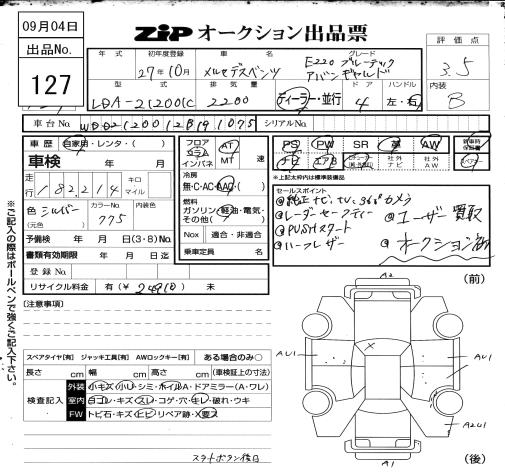 09月04日
ZIP オークション出品票
出品No.
127
年式
初年度登録
車名
グレード
評価点
27年10月
メルセデスベンツ
E220 ブルーテック
アバンギャルド
3.5
型式
排気量
ドア
ハンドル
内装
LDA-212001C
2200
ディーラー・並行
4
左・右
B
車台No.
WDD2120012B191075
シリアルNo.
車歴
自家用・レンタ・( )
車検
年 月
走行
182,214
キロ
マイル
色
シルバー
(元色)
カラーNo.
775
内装色
予備検 年 月 日(3・8)No.
書類有効期限 年 月 日迄
登録No.
リサイクル料金
有(¥ )
未
フロア
コラム
インパネ
AT
MT
速
冷房
無・C・AC・AAC・( )
燃料
ガソリン・軽油・電気・
その他( )
Nox
適合・非適合
乗車定員
名
PS
PW
SR
革
AW
ナビ
エアB
社外
ナビ
社外
AW
※上記太枠内は標準装備品
セールスポイント
@純正ナビ、TV、360°カメラ
@レーダーセーフティー
@PUSHスタート
@ハーフレザー
@ユーザー買取
@オークション
※ご記入の際はボールペンで強くご記入下さい。
[注意事項]
スペアタイヤ[有] ジャッキ工具[有] AWロックキー[有] ある場合のみ〇
長さ cm 幅 cm 高さ cm (車検証上の寸法)
検査記入
外装
小キズ・小U・シミ・ホイルA・ドアミラー(A・ワレ)
室内
ヨゴレ・キズ・スレ・コゲ・穴・キレ・破れ・ウキ
FW
トビ石・キズ・ヒビ・リペア跡・X要ス
スタートボタン後日
(前)
A2
X
AU1
AU1
A2U1
A1
(後)